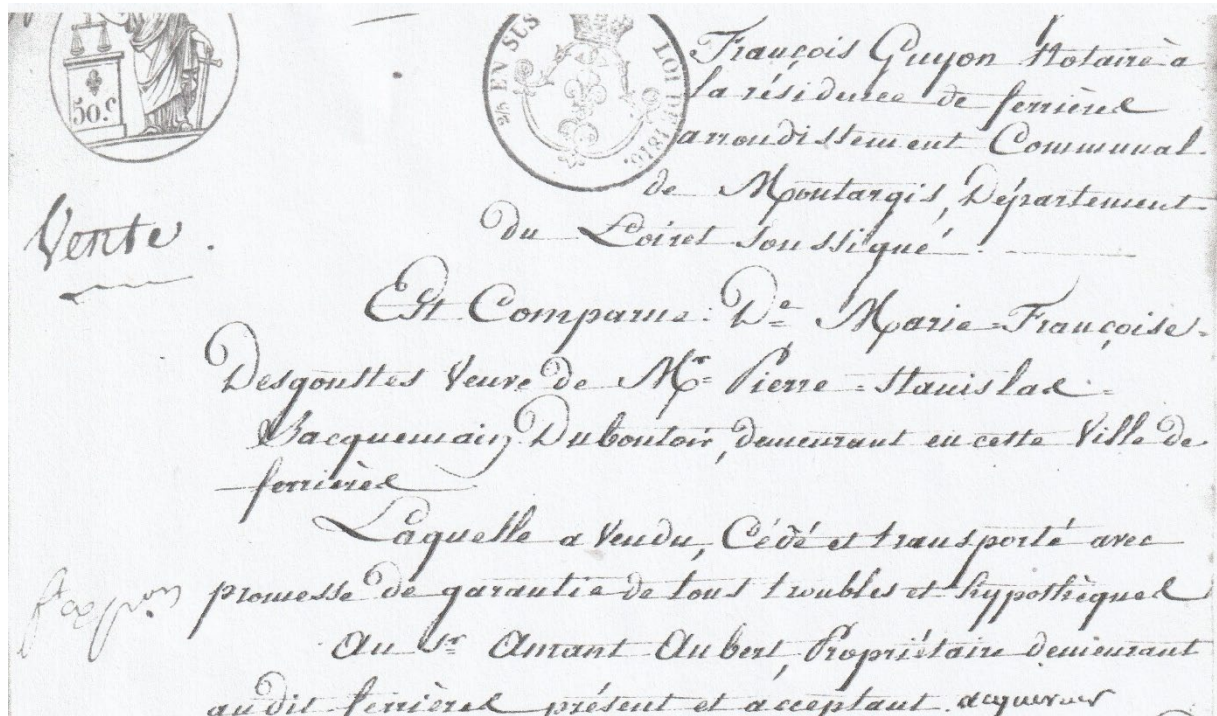 50.c
2/5 EN SUS
LOI DE 1816.
François Guyon Notaire à
la résidence de ferrières
arrondissement Communal
de Montargis, Département
du Loiret soussigné.
Vente.
Est Comparue: De Marie=Françoise=
Desgouttes Veuve de Mr Pierre=Stanislas=
Jacquemain Duboutoir, demeurant en cette Ville de
ferrières
Laquelle a Vendu, Cédé et transporté avec
promesse de garantie de tous troubles et hypothèques
Au Sr Amant Aubert, Propriétaire demeurant
audit ferrières présent et acceptant acquéreur